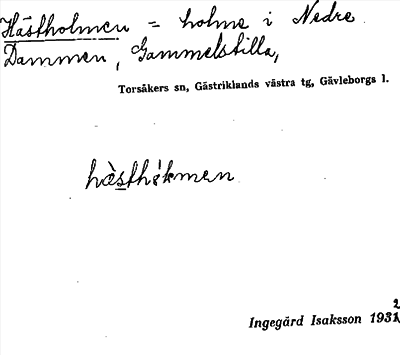 Hästholmen = holme i Nedre
Dammen, Gammelstilla,
Torsåkers sn, Gästriklands västra tg, Gävleborgs l.
hàsthòkmen
Ingegärd Isaksson 1932